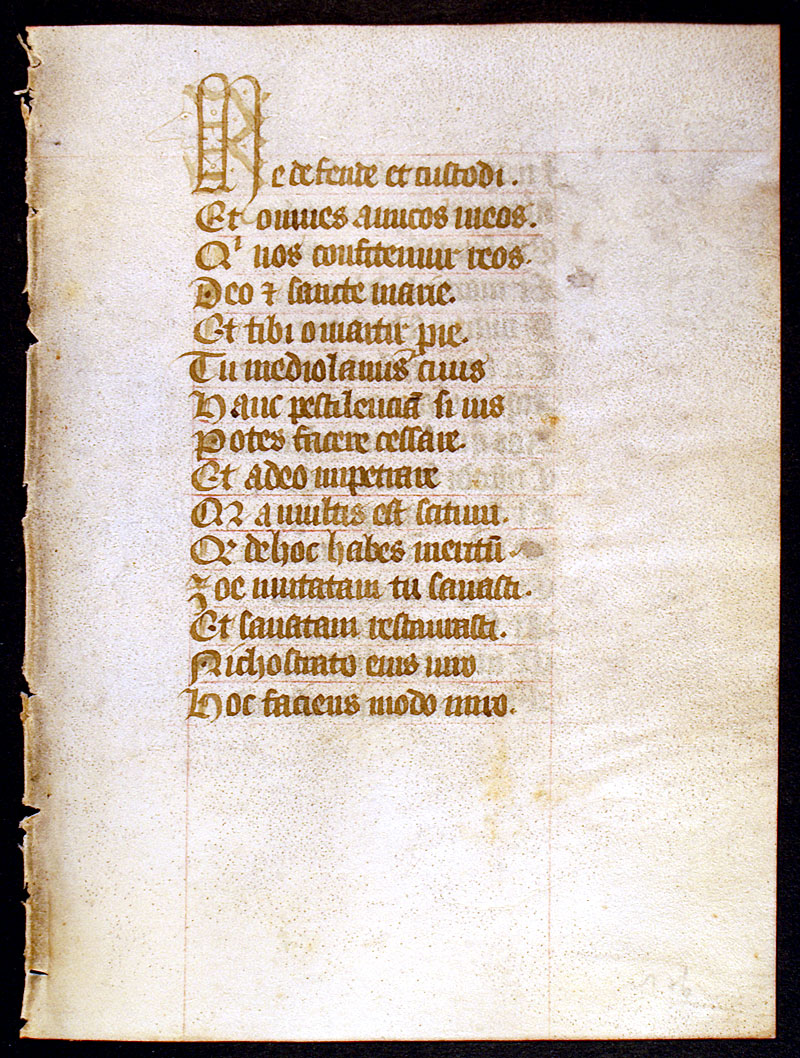 Me defende et custodi.
Et omnes amicos meos.
Qi nos confitemur reos.
Deo ⁊ sancte marie.
Et tibi o martir pie.
Tu mediolanus ciuis
Hanc pestilenciā si uis
Potes facere cessare.
Et adeo impetrare
Qr a multis est scitum.
Qr dehoc habes meritū
Zoe mutatam tu sanasti.
Et sanatam restaurasti.
Nichostrato eius uiro
Hoc faciens modo miro.